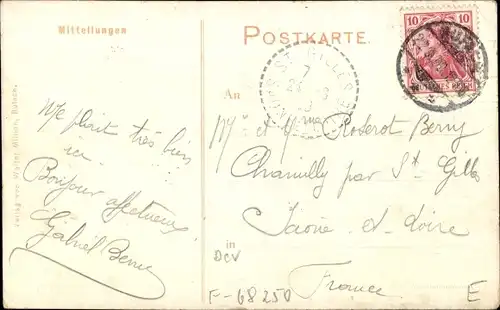 Mitteilungen
POSTKARTE
10
10
DEUTSCHES REICH
ST GILLES
7
24
An
Me plait très bien
ici
Bonjour affectueux
Gabriel Berry
Mr et Mme Roserot Berry
Chamilly par St Gilles
Saône-et-Loire
in
France
DCV
F-68250
E